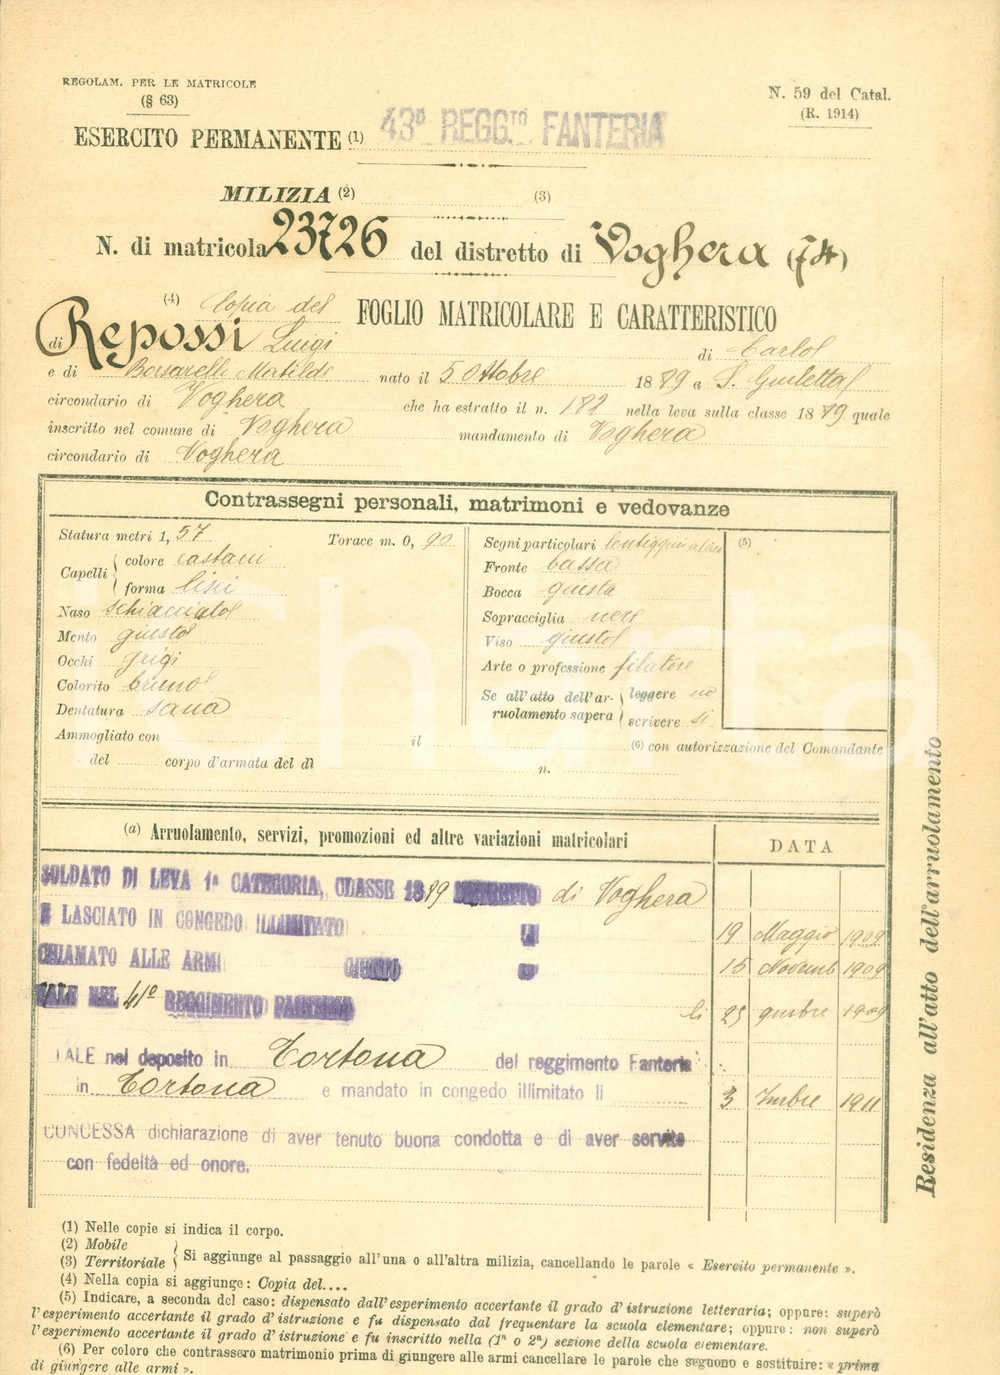 REGOLAM. PER LE MATRICOLE
(§ 63)
N. 59 del Catal.
(R. 1914)
ESERCITO PERMANENTE (1) 43º REGG.to FANTERIA
MILIZIA (2) (3)
N. di matricola 23726 del distretto di Voghera (74)
(4) Copia del FOGLIO MATRICOLARE E CARATTERISTICO
di Repossi Luigi di Carlo
e di Matilde nato il 5 Ottobre 1889 a S. Giuletta
circondario di Voghera che ha estratto il n. 182 nella leva sulla classe 1889 quale
inscritto nel comune di Voghera mandamento di Voghera
circondario di Voghera
Contrassegni personali, matrimoni e vedovanze
Statura metri 1, 57 Torace m. 0, 90
Capelli { colore castani
forma lisci
Naso schiacciato
Mento giusto
Occhi grigi
Colorito bruno
Dentatura sana
Segni particolari
Fronte bassa
Bocca giusta
Sopracciglia nere
Viso giusto
Arte o professione filatore
Se all'atto dell'arruolamento sapera { leggere
scrivere si
(5)
Ammogliato con il (6) con autorizzazione del Comandante
del corpo d'armata del dì n.
(a) Arruolamento, servizi, promozioni ed altre variazioni matricolari
DATA
SOLDATO DI LEVA 1ª CATEGORIA, CLASSE 1889 DISTRETTO di Voghera
E LASCIATO IN CONGEDO ILLIMITATO 19 Maggio 1909
CHIAMATO ALLE ARMI E GIUNTO 15 Novemb 1909
TALE NEL 41º REGGIMENTO FANTERIA li 25 9mbre 1909
TALE nel deposito in Tortona del reggimento Fanteria
in Tortona e mandato in congedo illimitato li 3 7mbre 1911
CONCESSA dichiarazione di aver tenuto buona condotta e di aver servito
con fedeltà ed onore.
Residenza all'atto dell'arruolamento
(1) Nelle copie si indica il corpo.
(2) Mobile
(3) Territoriale } Si aggiunge al passaggio all'una o all'altra milizia, cancellando le parole « Esercito permanente ».
(4) Nella copia si aggiunge: Copia del....
(5) Indicare, a seconda del caso: dispensato dall'esperimento accertante il grado d'istruzione letteraria; oppure: superò
l'esperimento accertante il grado d'istruzione e fu dispensato dal frequentare la scuola elementare; oppure: non superò
l'esperimento accertante il grado d'istruzione e fu inscritto nella (1ª o 2ª) sezione della scuola elementare.
(6) Per coloro che contrassero matrimonio prima di giungere alle armi cancellare le parole che seguono e sostituire: « prima
di giungere alle armi ».